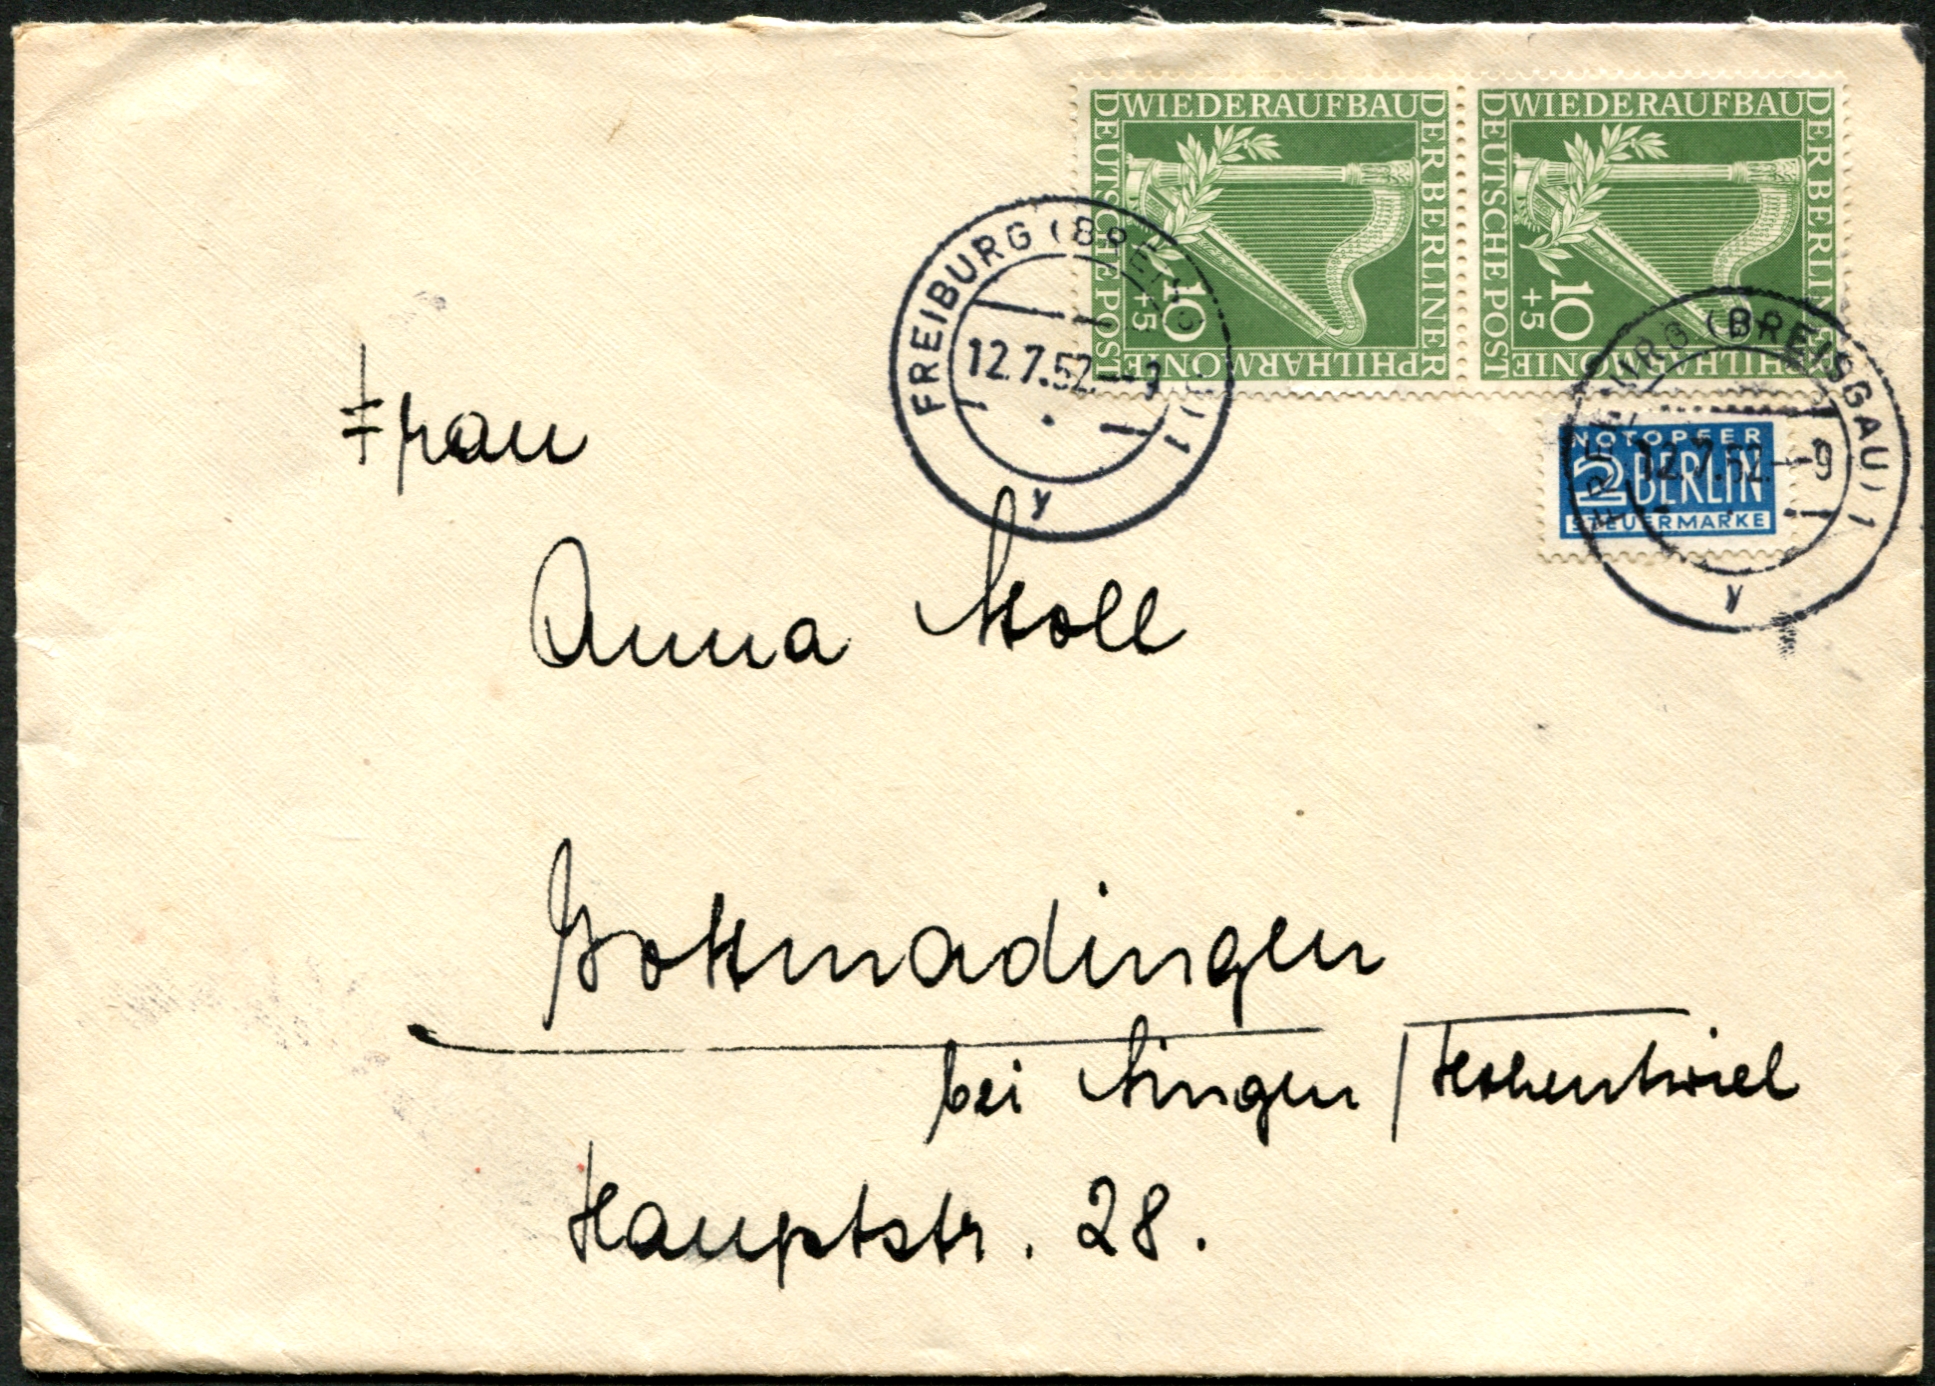 DEUTSCHE POST WIEDERAUFBAU DER BERLINER PHILHARMONIE
10
+5
DEUTSCHE POST WIEDERAUFBAU DER BERLINER PHILHARMONIE
10
+5
FREIBURG (BREISGAU) 1
12.7.52.--9
y
FREIBURG (BREISGAU) 1
12.7.52.--9
y
NOTOPFER
2 BERLIN
STEUERMARKE
Frau
Anna Stoll
Gottmadingen
bei Singen / Hohentwiel
Hauptstr. 28.